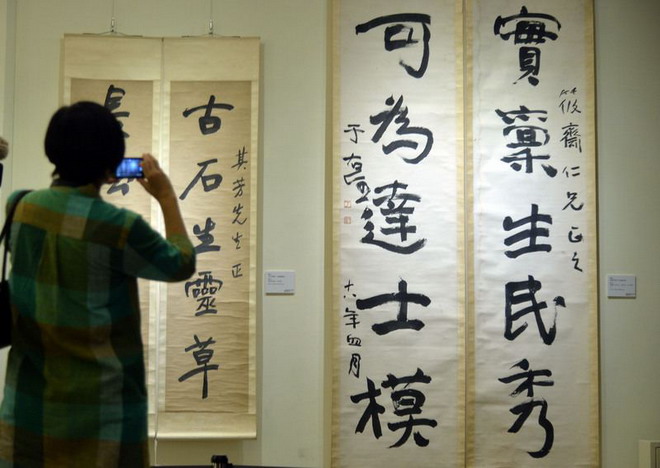 實稟生民秀
筱齋仁兄正之
可為達士模
十八年四月
于右任
古石生靈草
其芳先生正
長